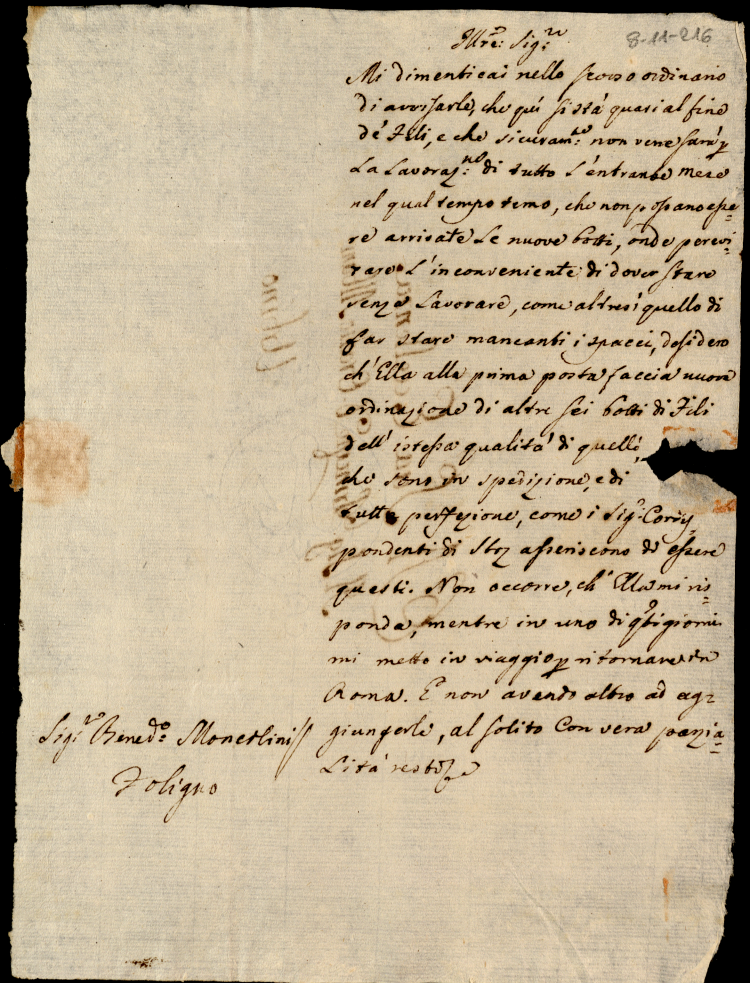 8-11-216
Illre: Sig:re
Mi dimenticai nello scorso ordinario
di avvisarle, che quì si stá quasi al fine
de' Fili, e che sicuram:te non vene sarà p
La Lavoraz:ne di tutto L'entrante Mese
nel qual tempo temo, che non possano esse=
re arrivate Le nuove botti, onde per evi=
tare L'inconveniente di dover stare
senza Lavorare, come altresi quello di
far stare mancanti i spacci, desidero
ch'Ella alla prima posta faccia nuova
ordinazione di altre sei botti di Fili
dell'istessa qualitá di quelle,
che sono in spedizione, e di
tutta perfezione, come i Sig:i Corris=
pondenti di asseriscono di essere
questi. Non occorre, ch'Ella mi ris=
ponda, mentre in uno di q:ti giorni
mi metto in viaggio p ritornare in
Roma. E non avendo altro ad ag=
giungerle, al solito Con vera parzia=
Litá resto
Sig:re Bened:o Monetlini
Foligno